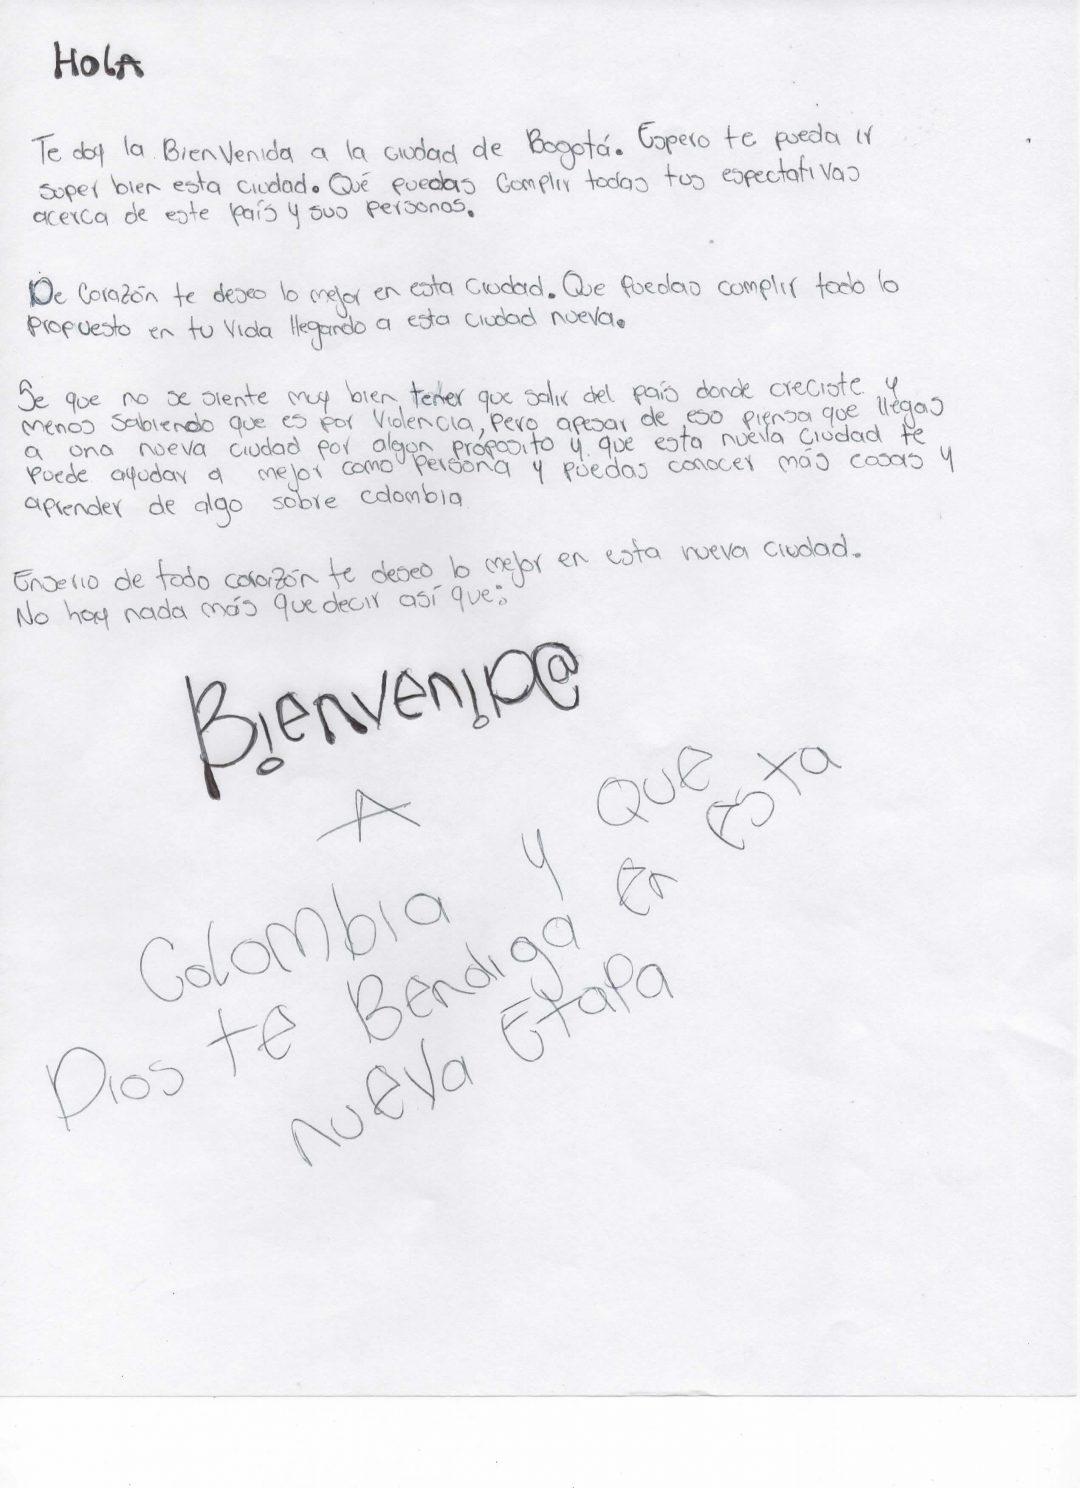 HOLA
Te doy la BienVenida a la ciudad de Bogotá. Espero te pueda ir
super bien esta ciudad. Qué puedas Complir todas tus espectativas
acerca de este país y sus personas.
De Corazón te deseo lo mejor en esta ciudad. Que puedas cumplir todo lo
propuesto en tu Vida llegando a esta ciudad nueva.
Se que no se siente muy bien tener que salir del país donde creciste y
menos sabiendo que es por Violencia, pero apesar de eso piensa que llegas
a una nueva ciudad por algun proposito y que esta nueva ciudad te
puede ayudar a mejor como persona y puedas conocer más cosas y
aprender de algo sobre colombia
Enserio de todo corazón te deseo lo mejor en esta nueva ciudad.
No hay nada más que decir así que:
BienveniD@
A
Colombia y QUE
Dios te Bendiga en esta
nueva Etapa